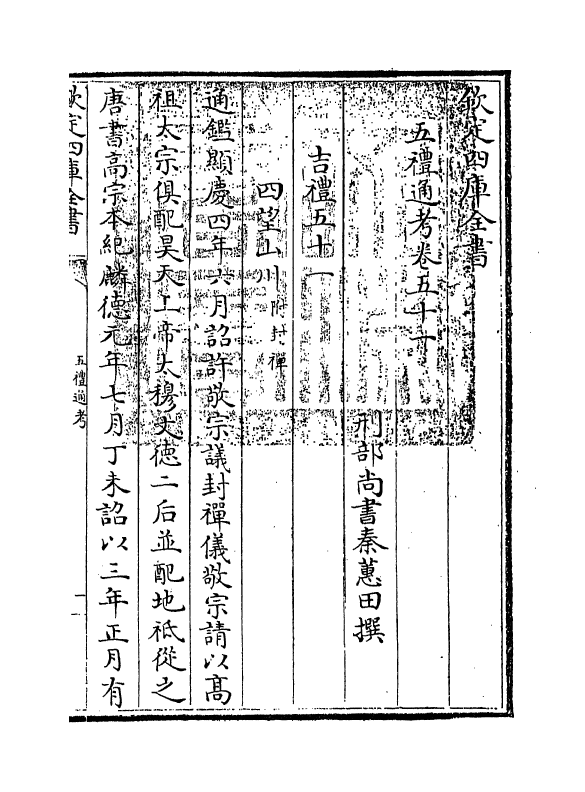 欽定四庫全書
五禮通考卷五十一
刑部尚書秦蕙田撰
吉禮五十一
四望山川附封禪
通鑑顯慶四年六月詔許敬宗議封禪儀敬宗請以髙
祖太宗俱配昊天上帝太穆文德二后並配地祗從之
唐書高宗本紀麟德元年七月丁未詔以三年正月有
欽定四庫全書
五禮通考
一